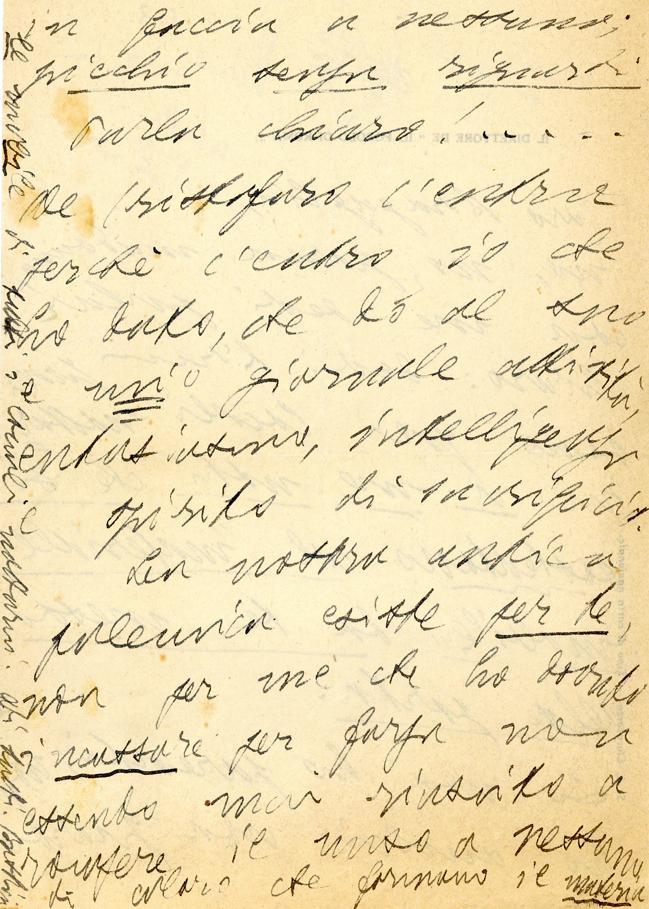 in faccia a nessuno,
picchio senza riguardi
Parla chiaro! . . . . .
De Cristofaro c'entra
perchè c'entro io che
ho dato, che dò al suo
e mio giornale attività,
entusiasmo, intelligenza
e spirito di sacrificio.
La nostra antica
polemica esiste per te,
non per me che ho dovuto
incassare per forza non
essendo mai riuscito a
rompere il muso a nessuno
di coloro che formano il materia
di tutti i
IL DIRETTORE DE